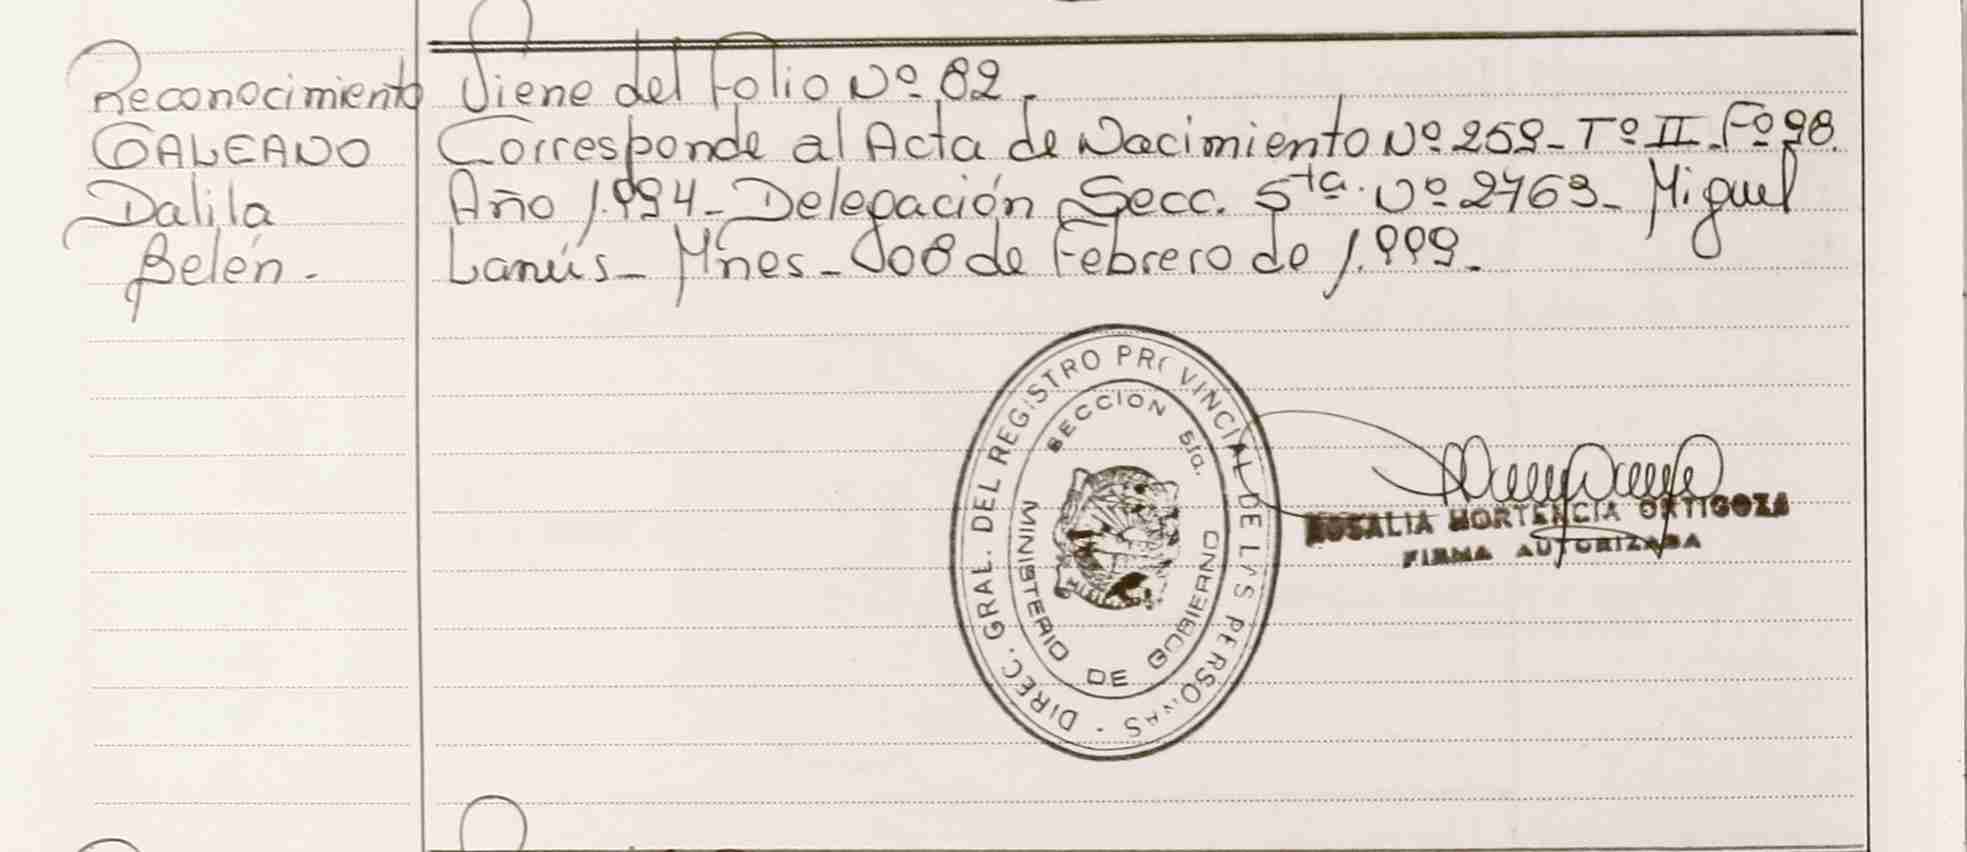 Reconocimiento
GALEANO
Dalila
Belén.-
Viene del Folio Nº 82.-
Corresponde al Acta de Nacimiento Nº 259- Tº II- Fº 98.
Año 1.994- Delegación Secc. 5ta. Nº 2763- Miguel
Lanús- Mnes- 08 de Febrero de 1.999.-
DIREC. GRAL. DEL REGISTRO PROVINCIAL DE LAS PERSONAS -
SECCION 5ta.
MINISTERIO DE GOBIERNO
ROSALIA HORTENCIA ORTIGOZA
FIRMA AUTORIZADA